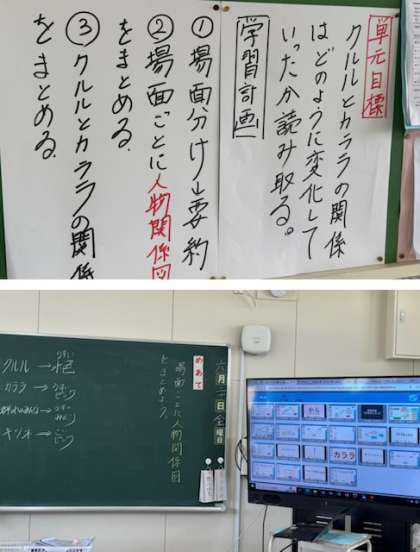 単元目標
クルルとカララの関係
はどのように変化して
いったか読み取る。
学習計画
①場面分け→要約
②場面ごとに人物関係図
をまとめる。
③クルルとカララの関係
をまとめる。
六月
日(金曜日)
めあて
場面ごとに人物関係図
をまとめよう。
クルル→
カララ→
キリリ→
カララ